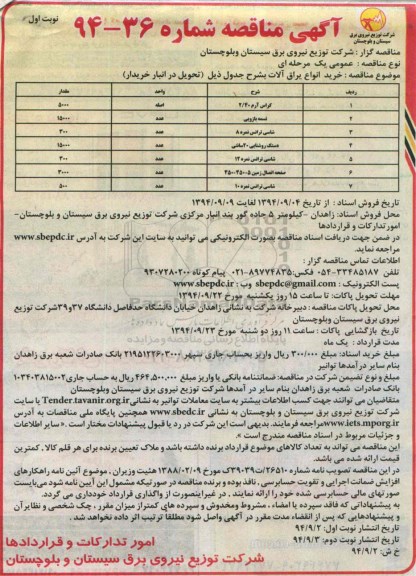 نوبت اول
آگهی مناقصه شماره ۳۶-۹۴
شرکت توزیع نیروی برق
سیستان و بلوچستان
مناقصه گزار : شرکت توزیع نیروی برق سیستان وبلوچستان
نوع مناقصه : عمومی یک مرحله ای
موضوع مناقصه : خرید انواع یراق آلات بشرح جدول ذیل (تحویل در انبار خریدار)
ردیف شرح واحد مقدار
۱ کراس آرم ۲/۴۰ اصله ۵۰۰۰
۲ تسمه بازویی عدد ۱۵۰۰۰
۳ شاسی ترانس نمره ۸ عدد ۳۰۰
۴ دستک روشنایی ۲۰سانتی عدد ۱۵۰۰۰
۵ شاسی ترانس نمره ۱۲ عدد ۳۰۰
۶ صفحه اتصال زمین عدد ۳۰۰۰
۷ شاسی ترانس نمره ۱۰ عدد ۵۰۰
تاریخ فروش اسناد : از تاریخ ۱۳۹۴/۰۹/۰۴ لغایت ۱۳۹۴/۰۹/۰۹
محل فروش اسناد: زاهدان -کیلومتر ۵ جاده گور بند انبار مرکزی شرکت توزیع نیروی برق سیستان و بلوچستان-
امورتدارکات و قراردادها
در ضمن جهت دریافت اسناد مناقصه بصورت الکترونیکی می توانید به سایت این شرکت به آدرس www.sbepdc.ir
مراجعه نمایید.
اطلاعات تماس مناقصه گزار :
تلفن ۳۳۴۸۵۱۸۷-۰۵۴ فکس:۸۹۷۷۴۸۳۵-۰۲۱ پیام کوتاه ۹۳۰۷۲۸۰۲۰۰
پست الکترونیک : sbepdc@gmail.com وب : www.sbepdc.ir
مهلت تحویل پاکات: تا ساعت ۱۵ روز یکشنبه مورخ ۱۳۹۴/۰۹/۲۲
محل تحویل پاکات مناقصه : دبیرخانه شرکت به نشانی زاهدان خیابان دانشگاه حدفاصل دانشگاه ۳۷و۳۹شرکت توزیع
نیروی برق سیستان وبلوچستان
تاریخ بازگشایی پاکات : ساعت ۱۱ روز دو شنبه مورخ ۱۳۹۴/۰۹/۲۳
مدت قرارداد : یک ماه
مبلغ خرید اسناد: مبلغ ۳۰۰/۰۰۰ ریال واریز بحساب جاری سپهر بانک صادرات شعبه برق زاهدان
بنام سایر درآمدها توانیر
مبلغ و نوع تضمین شرکت در مناقصه: ضمانتنامه بانکی یا واریز مبلغ ۴۶۴.۵۰۰.۰۰۰ ریال به حساب جاری
بانک صادرات شعبه برق زاهدان بنام سایر در آمدها شرکت توزیع نیروی برق سیستان وبلوچستان
متقاضیان می توانند جهت کسب اطلاعات بیشتر به سایت معاملات توانیر به نشانیTender.tavanir.org.ir یا سایت
شرکت توزیع نیروی برق سیستان و بلوچستان به نشانی www.sbedc.ir همچنین پایگاه ملی مناقصات به آدرس
www.iets.mporg.ir مراجعه فرمایند. بدیهی است این شرکت در رد یا قبول پیشنهادات مختار است . « سایر اطلاعات
و جزئیات مربوط در اسناد مناقصه مندرج است ».
این مناقصه می تواند به تعداد کالاهای موضوع قرارداد برنده داشته باشد و ملاک تعیین برنده برای هر قلم کالا، کمترین
قیمت ارائه شده می باشد.
در این مناقصه تصویب نامه شماره ۲۶۵۱۰/ت۳۹۰۳۹ک مورخ ۱۳۸۸/۰۲/۰۹ هئیت وزیران ، موضوع آئین نامه راهکارهای
افزایش ضمانت اجرایی و تقویت حسابرسی ، نافذ بوده و برنده مناقصه در صورتیکه مشمول این آیین نامه شود می‌بایست
صورتهای مالی حسابرسی شده خود را ارائه نمایند , در غیر اینصورت از واگذاری قرارداد خودداری می گردد.
به پیشنهاداتی که فاقد سپرده یا امضاء ، مشروط ومخدوش و سپرده های کمتراز میزان مقرر ، چک شخصی و نظایر آن
و پیشنهادهایی که پس از انقضاء مدت مقرر در آگهی واصل شود مطلقا ترتیب اثر داده نخواهد شد.
تاریخ انتشار نوبت اول: ۹۴/۹/۲
تاریخ انتشار نوبت دوم: ۹۴/۹/۳
خ ش: ۹۴/۹/۲
امور تدارکات و قراردادها
شرکت توزیع نیروی برق سیستان و بلوچستان